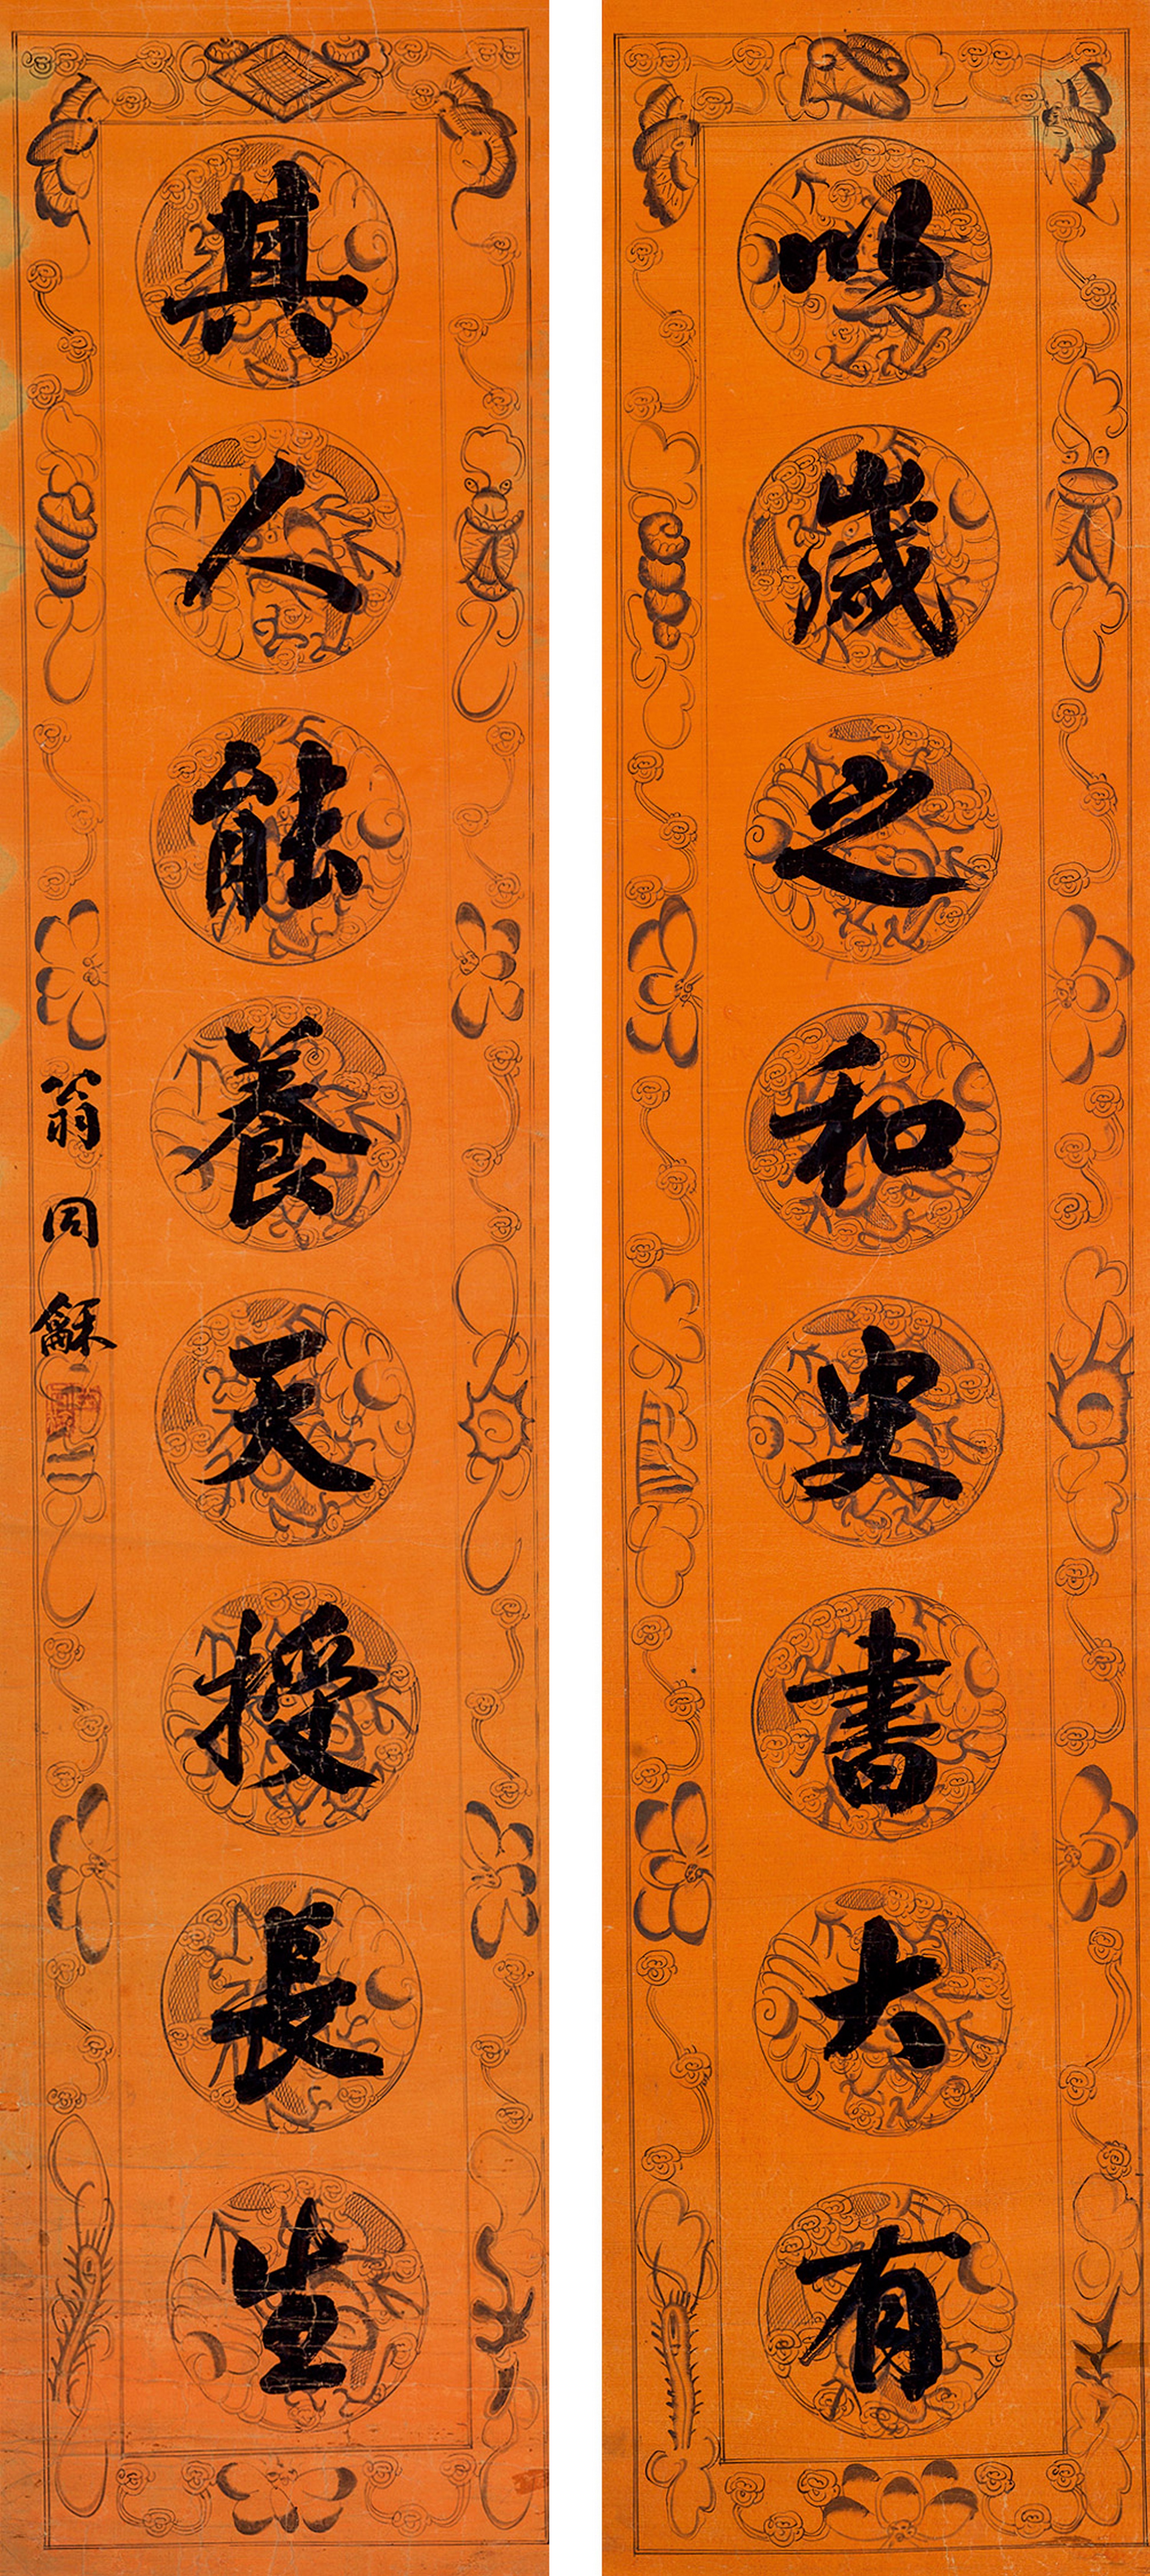 以歲之和史書大有
其人能養天授長生
翁同龢